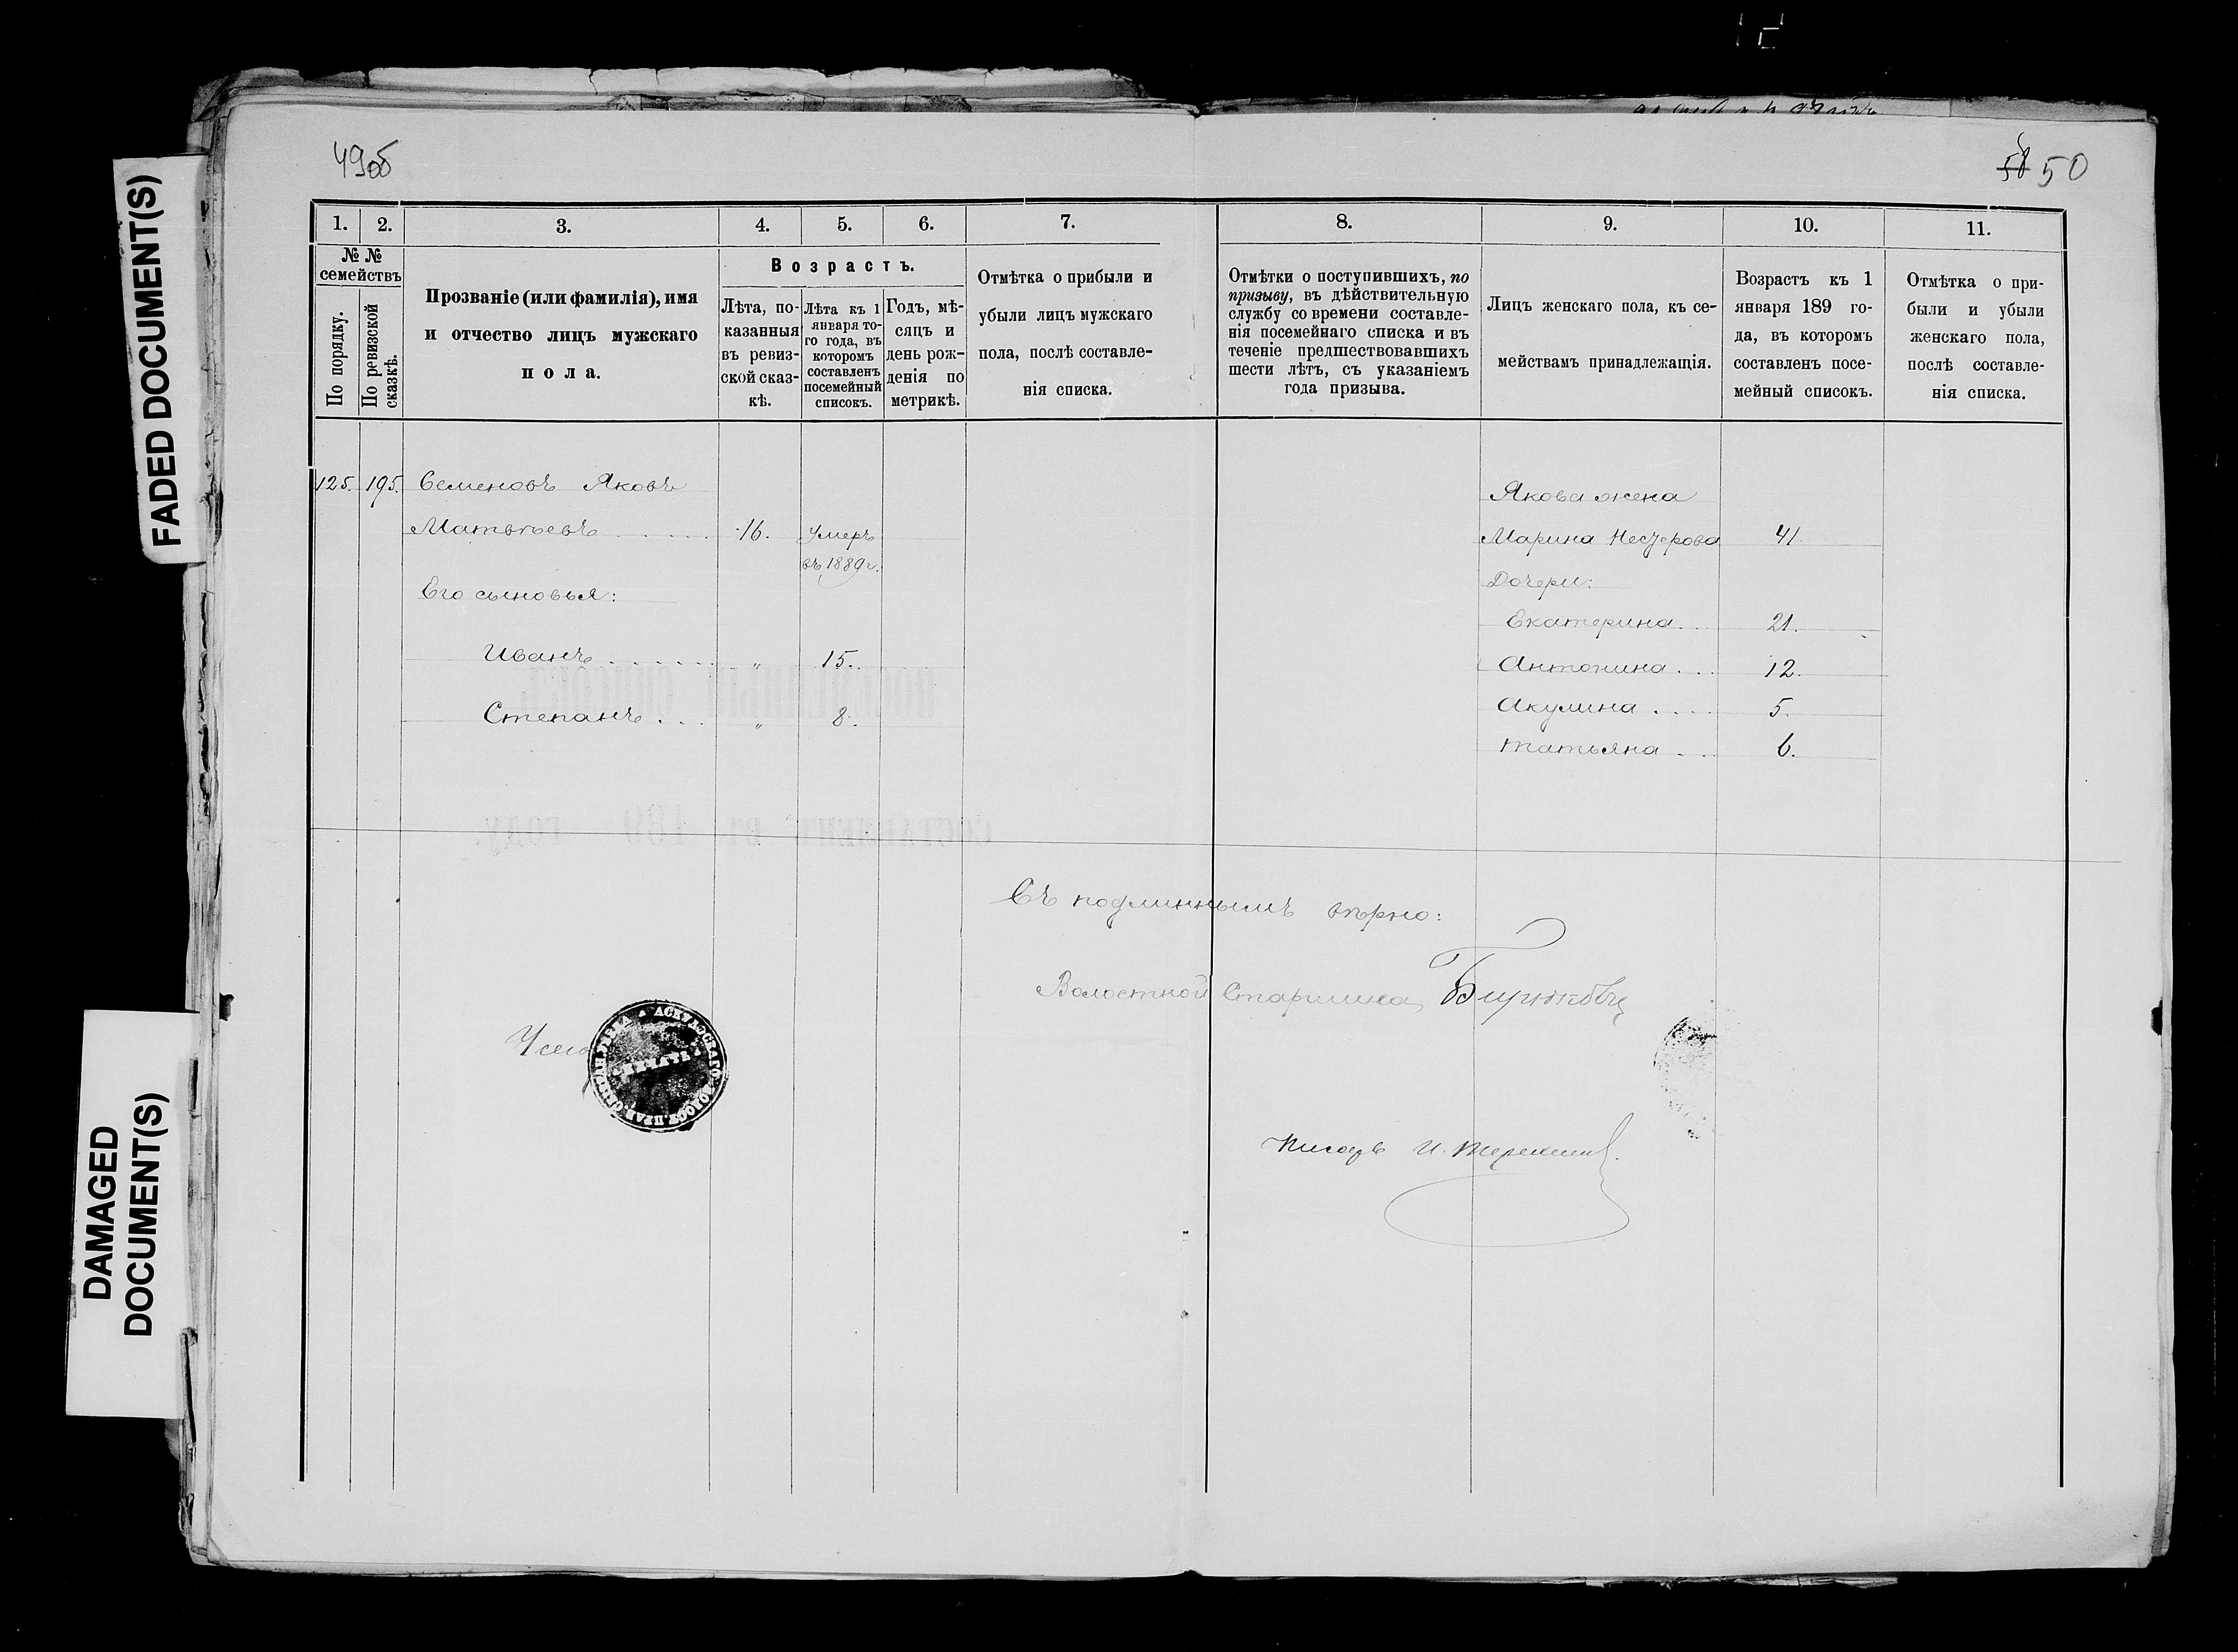 49об
58 50
FADED DOCUMENT(S)
DAMAGED
DOCUMENT(S)
1. 2. 3. 4. 5. 6. 7. 8. 9. 10. 11.
№ №
семействъ
По порядку.
По ревизской
сказкѣ.
Прозваніе (или фамилія), имя
и отчество лицъ мужскаго
пола.
Возрастъ.
Лѣта, по-
казанныя
въ ревиз-
ской сказ-
кѣ.
Лѣта къ 1
января то-
го года, въ
которомъ
составленъ
посемейный
списокъ.
Годъ, мѣ-
сяцъ и
день рож-
денія по
метрикѣ.
Отмѣтка о прибыли и
убыли лицъ мужскаго
пола, послѣ составле-
нія списка.
Отмѣтки о поступившихъ, по
призыву, въ дѣйствительную
службу со времени составле-
нія посемейнаго списка и въ
теченіе предшествовавшихъ
шести лѣтъ, съ указаніемъ
года призыва.
Лицъ женскаго пола, къ се-
мействамъ принадлежащія.
Возрастъ къ 1
января 189 го-
да, въ которомъ
составленъ посе-
мейный списокъ.
Отмѣтка о при-
были и убыли
женскаго пола,
послѣ составле-
нія списка.
125. 195. Семеновъ Яковъ
Матвѣевъ 16. Умеръ
въ 1889 г.
Его сыновья:
Иванъ „ 15.
Степанъ „ 8.
Якова жена
Марина Нестерова 41
Дочери:
Екатерина 21.
Антонина 12.
Акулина 5.
Татьяна 6.
Съ подлиннымъ вѣрно:
Волостной Старшина Бирюковъ
Писарь И.